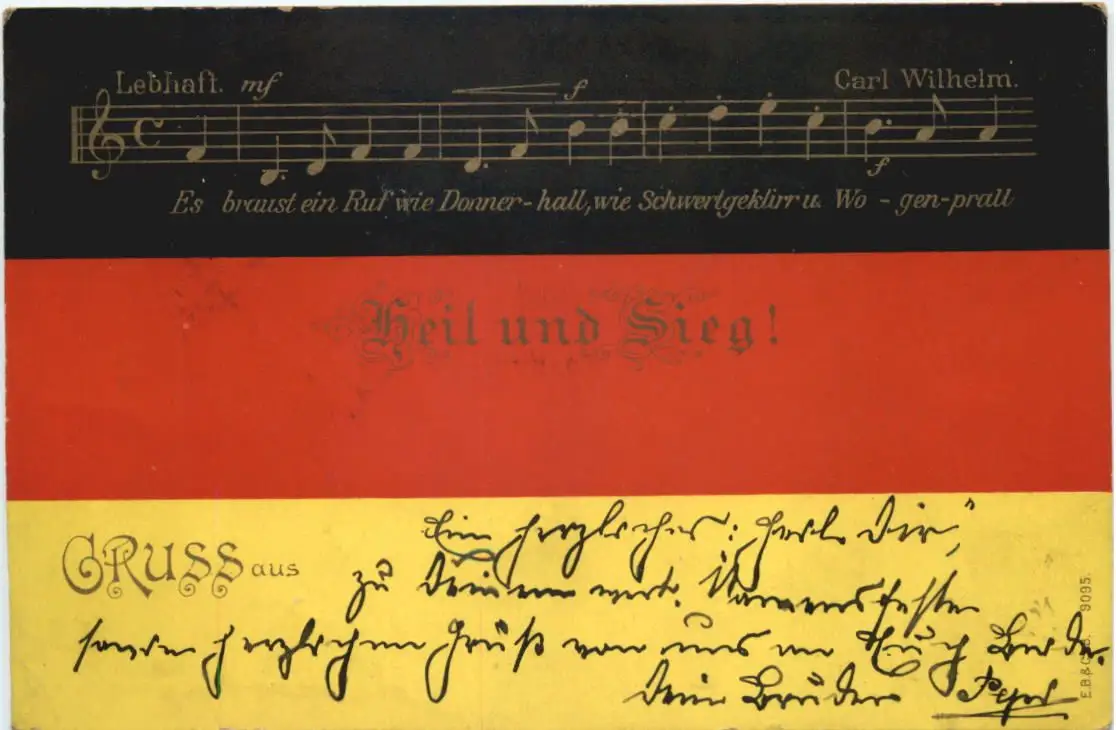 Lebhaft. mf f Carl Wilhelm.
f
Es braust ein Ruf wie Donner-hall, wie Schwertgeklirr u. Wo - gen-prall
Heil und Sieg!
Ein herzliches: Heil Dir",
GRUSS aus
zu Deinem wert. Namensfeste
sowie herzlichen Gruß von uns an Euch Beide.
Dein Bruder
E.B.&C. 9095.